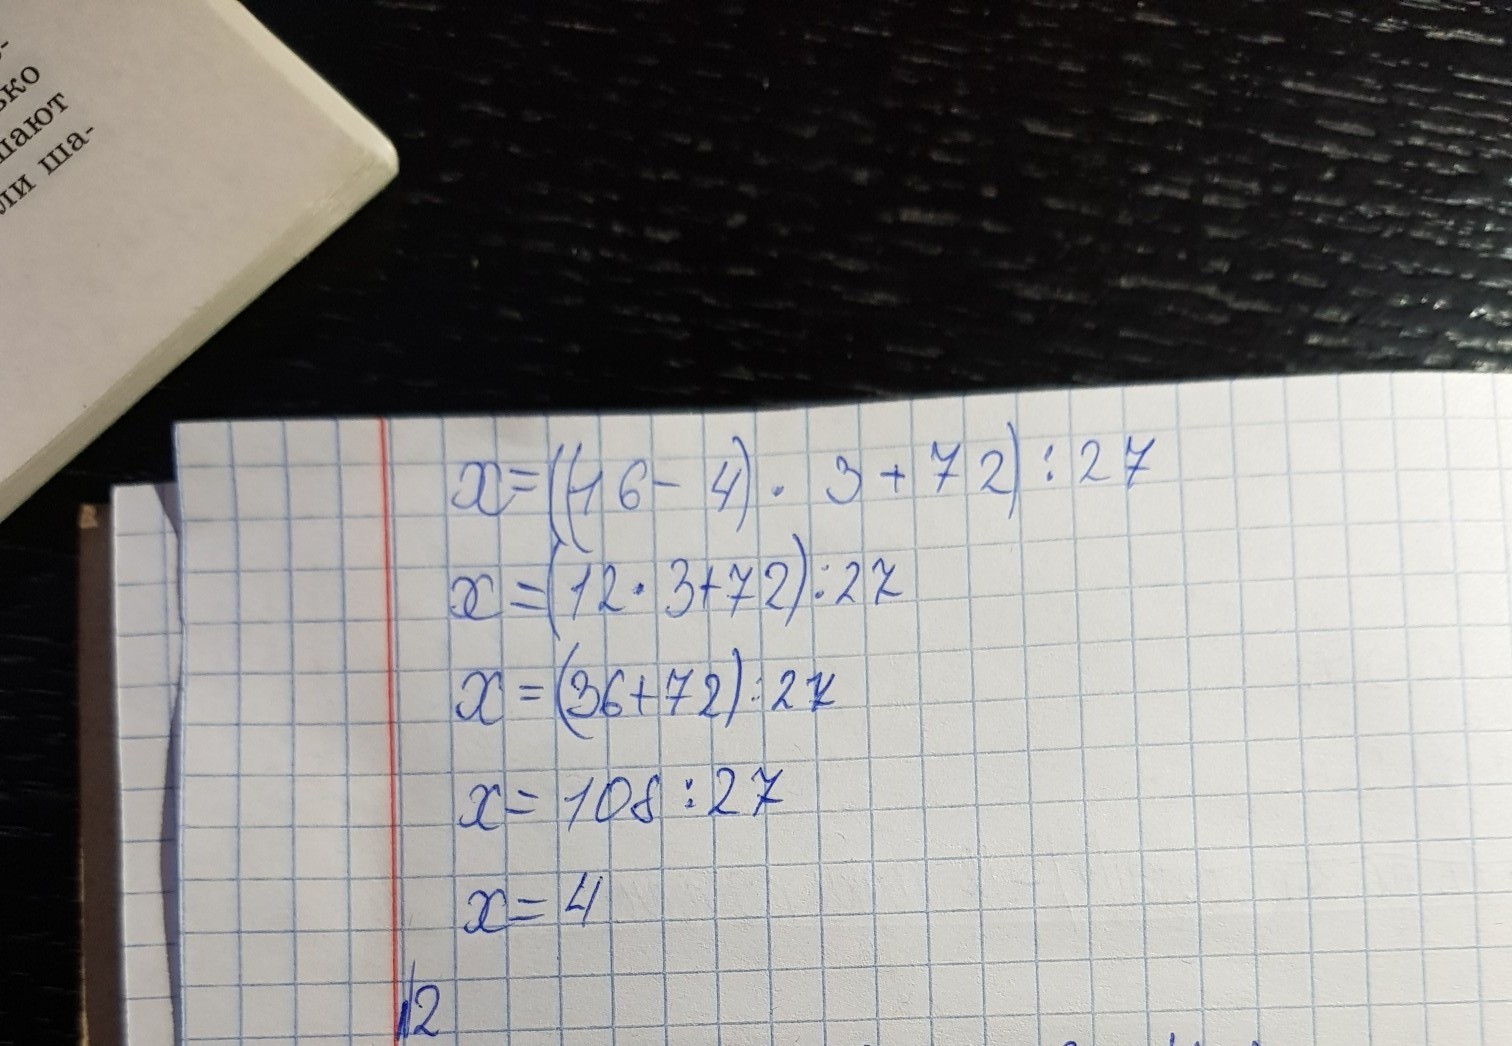 ько
шают
ли ша-
x=((16-4)·3+72):27
x=(12·3+72):27
x=(36+72):27
x=108:27
x=4
12